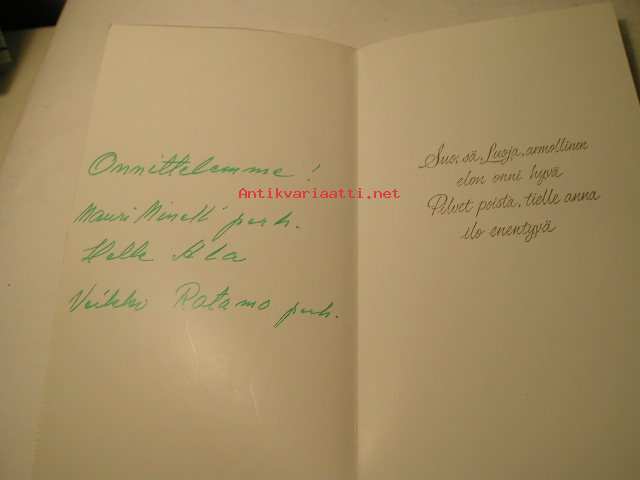 Onnittelemme!
Antikvariaatti.net
Mauri perh.
Helle
Veikko Ratamo perh.
Suo, sä, Luoja, armollinen
elon onni hyvä
Pilvet poista, tielle anna
ilo enentyvä